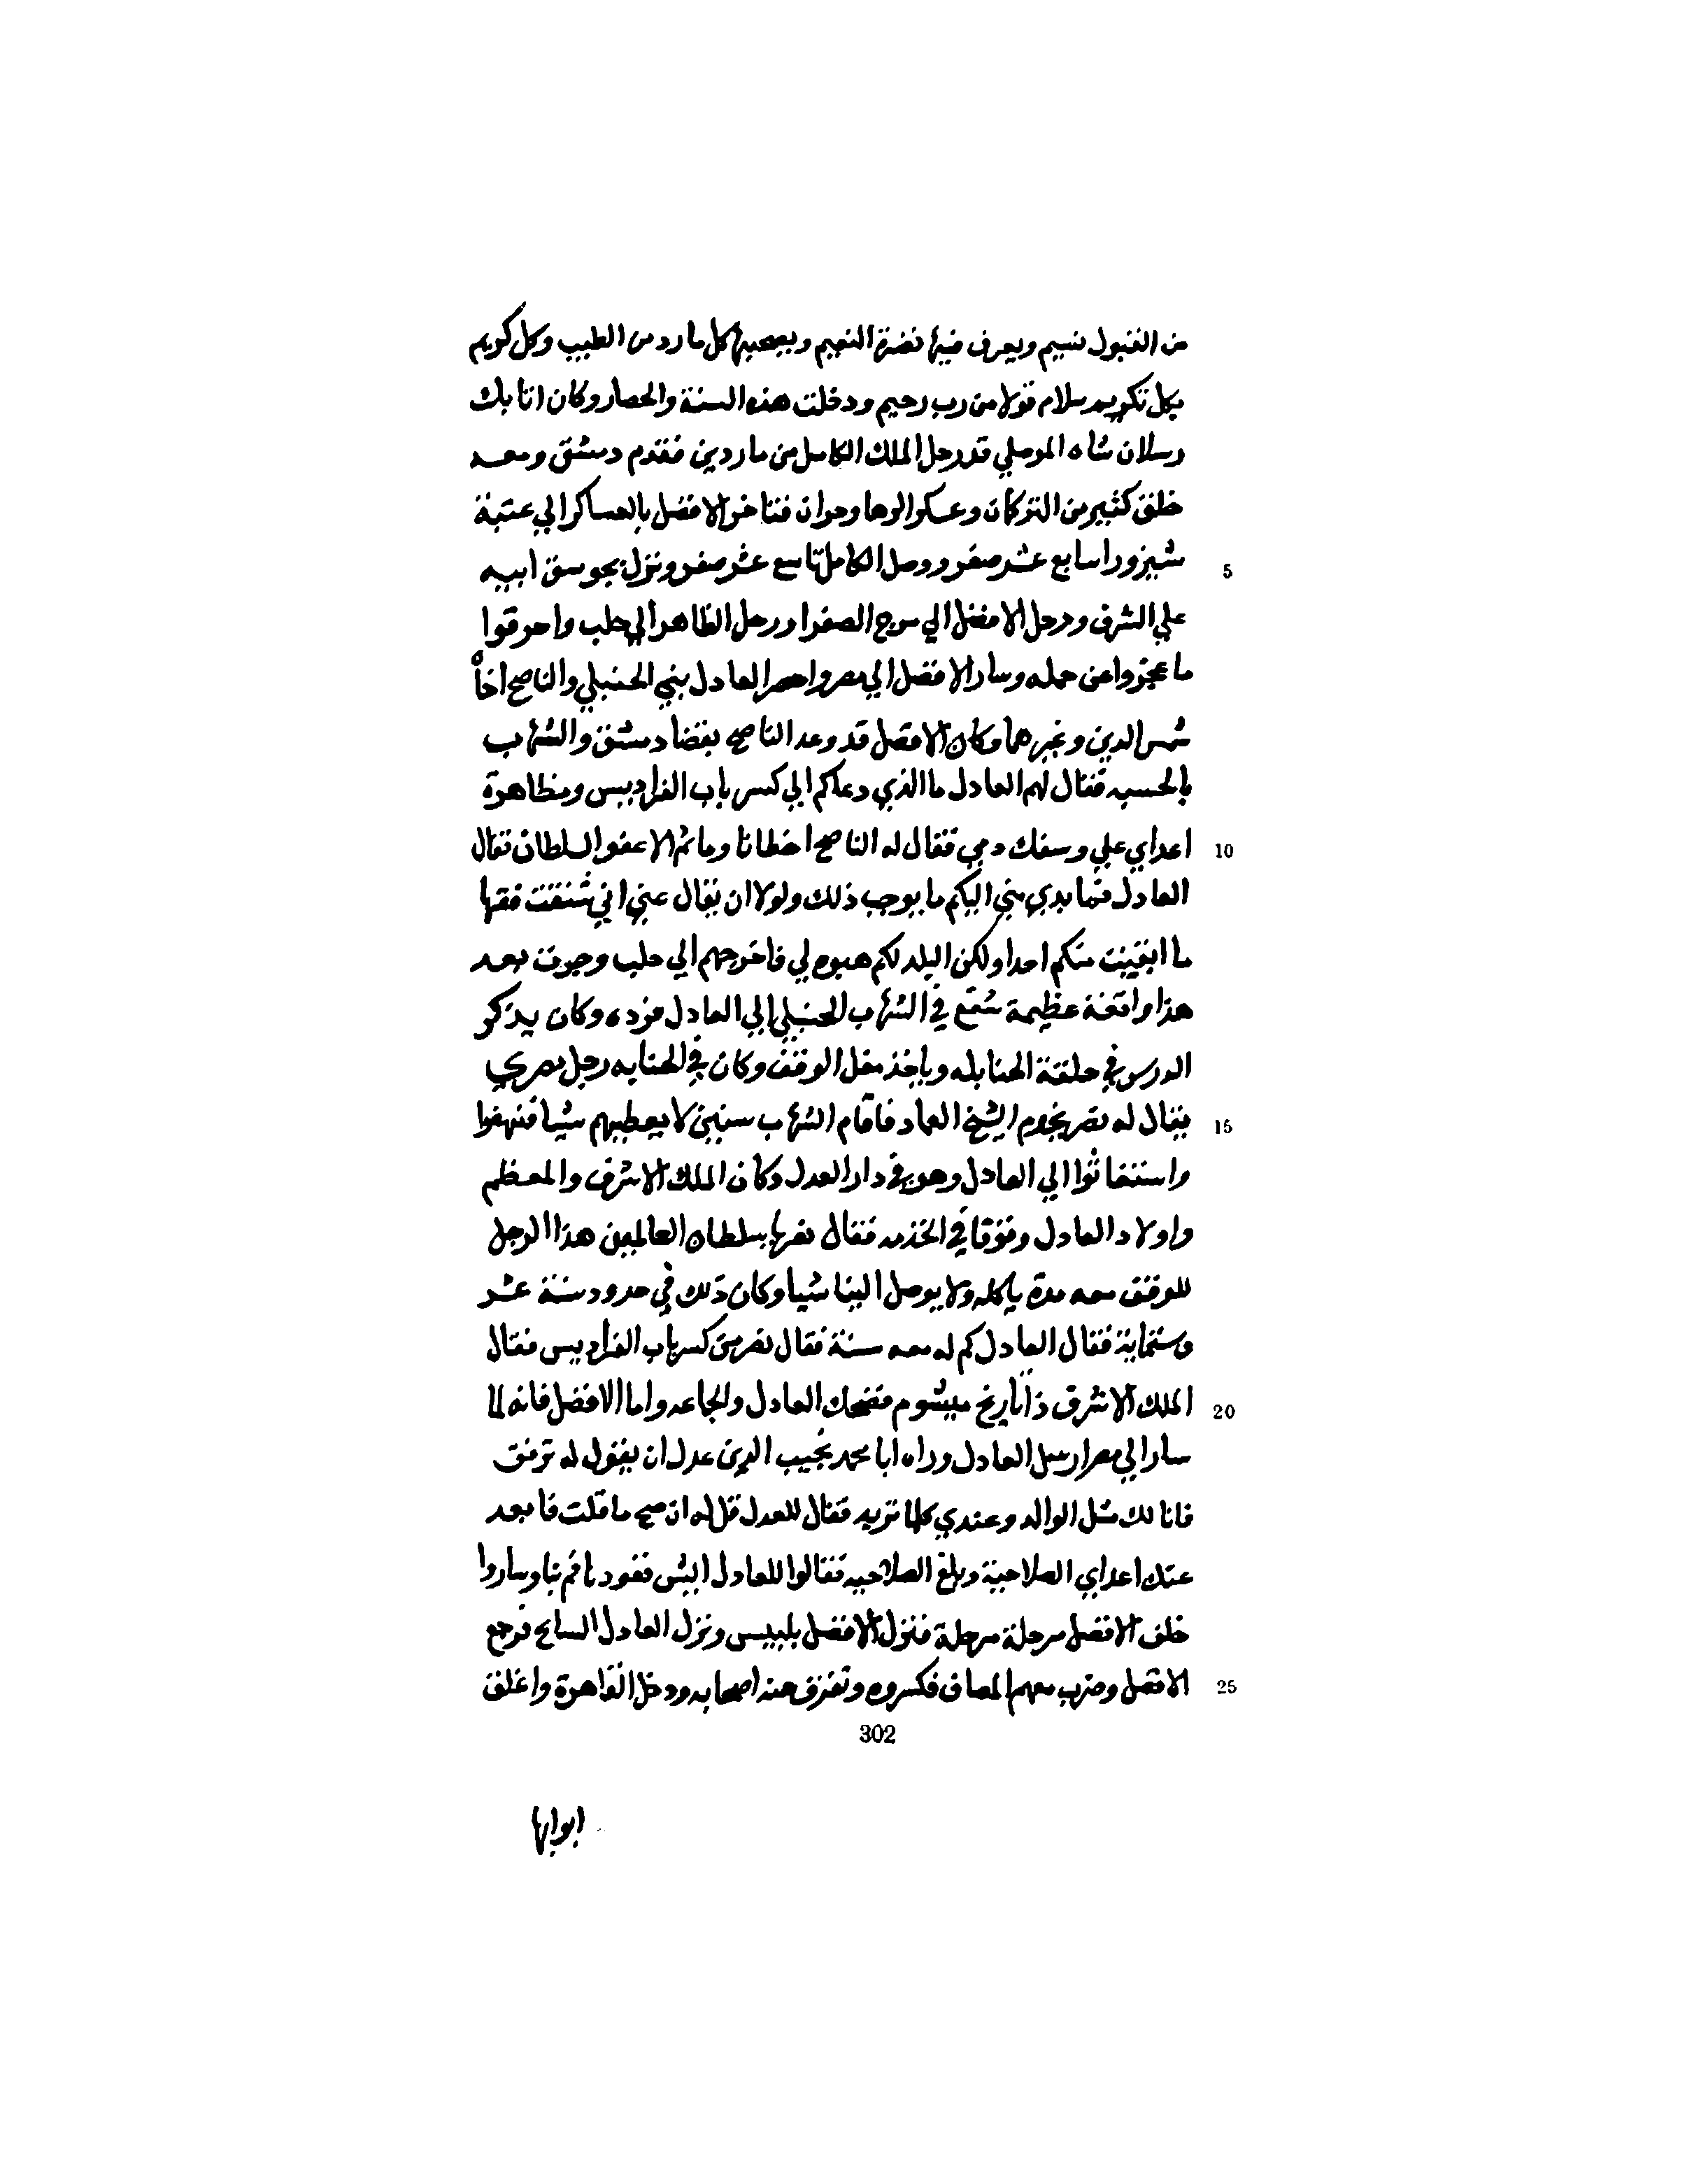 من القبول نسيم ويعرف فيها نضرة النعيم ويعصيها كل مارد من الطبيب وكل كريم
بكل تكريم سلام قولا من رب رحيم ودخلت هذه السنة والحصار وكان اتابك
رسلان شاه الموصلي قد رحل الملك الكامل من ماردين فقدم دمشق ومعه
خلق كثير من التركمان وعسكر الرها وحران فتاخر الافضل بالعساكر الي عقبة
شيزورا سابع عشر صفر ووصل الكامل تاسع عشر صفر ونزل بجوسق ابيه
علي الشرف ورحل الافضل الي مرج الصفرا ورحل الظاهر الي حلب واحرقوا
ما عجزوا عن حمله وسار الافضل الي مصر واحضر العادل بني الحنبلي والناصح اخا
شمس الدين وغيرهما وكان الافضل قد وعد الناصح بقضا دمشق والشهاب
بالحسبه فقال لهم العادل ما الذي دعاكم الي كسر باب الفراديس ومظاهرة
5
اعداي علي وسفك دمي فقال له الناصح اخطانا وما ثم الا عفو السلطان فقال
10
العادل فما بدي مني اليكم ما يوجب ذلك ولولا ان يقال عني اني شنقت فقها
ما ابقيت منكم احدا ولكن البلد لكم هبوه لي فاخرجهم الي حلب وجرت بعد
هذا واقعة عظيمة شفع في الشهاب الحنبلي الي العادل فرده وكان يذكر
الدرس في حلقة الحنابله وياخذ مغل الوقف وكان في الحنابله رجل مصري
يقال له نصر يخدم الشيخ العماد فاقام الشهاب سنين لا يعطيهم شيا فنهضوا
15
واستغاثوا الي العادل وهو في دار العدل وكان الملك الاشرف والمعظم
واولاد العادل وقوفا في الخدمه فقال نصر يا سلطان العالمين هذا الرجل
للوقف معه مدة ياكله ولا يوصل الينا شيا وكان ذلك في حدود سنة عشر
وستماية فقال العادل كم له معه سنة فقال نصر من كسر باب الفراديس فقال
الملك الاشرف ذا تاريخ ميشوم فضحك العادل والجماعه واما الافضل فانه لما
20
سار الي مصر ارسل العادل وراه ابا محمد نجيب الدين عدل ان يقول له ترفق
فانا لك مثل الوالد وعندي كلما تريد فقال للعدل قل له ان صح ما قلت فابعد
عنك اعداي الصلاحية وبلغ الصلاحيه فقالوا للعادل ايش قعودنا قم بنا وساروا
خلف الافضل مرحلة مرحلة فنزل الافضل بلبيس ونزل العادل السانح فرجع
الافضل وضرب معهم المصاف فكسروه وتفرق عنه اصحابه ودخل القاهرة واغلق
25
302
ابوابها